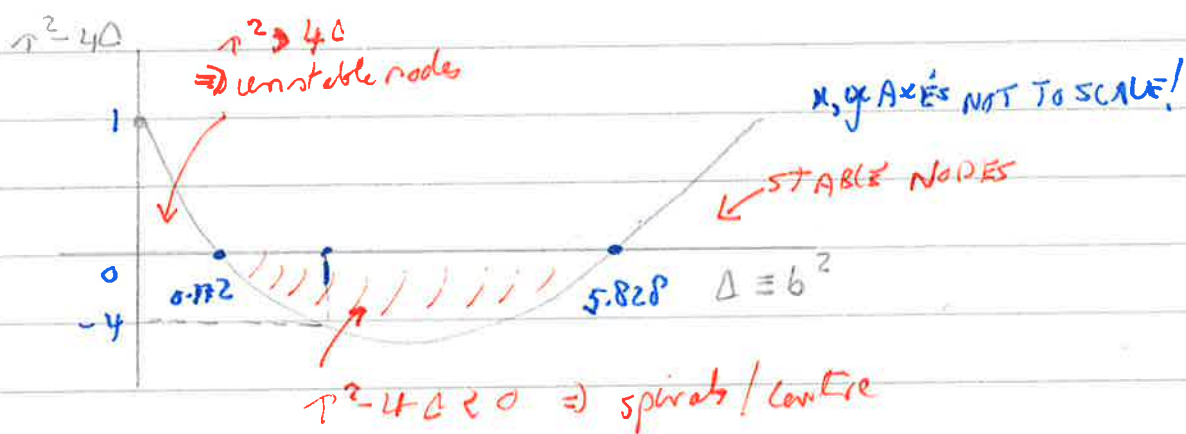 τ²-4Δ
τ² > 4Δ
⇒ unstable nodes
x, y AXES NOT TO SCALE!
1
STABLE NODES
0
5.828
Δ ≡ b²
-4
τ²-4Δ < 0 ⇒ spirals / centre